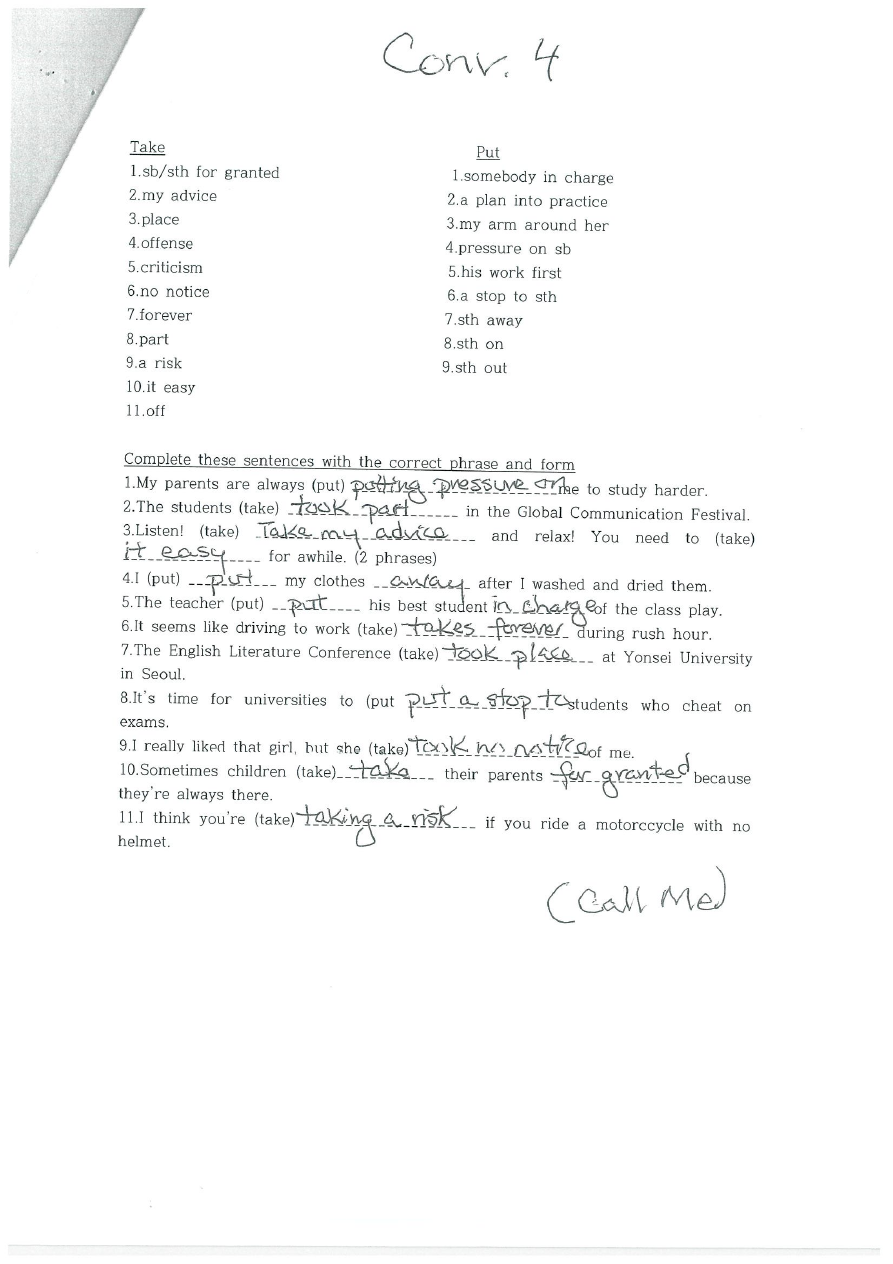 Conv. 4
Take
1.sb/sth for granted
2.my advice
3.place
4.offense
5.criticism
6.no notice
7.forever
8.part
9.a risk
10.it easy
11.off
Put
1.somebody in charge
2.a plan into practice
3.my arm around her
4.pressure on sb
5.his work first
6.a stop to sth
7.sth away
8.sth on
9.sth out
Complete these sentences with the correct phrase and form
1.My parents are always (put) putting pressure on me to study harder.
2.The students (take) took part in the Global Communication Festival.
3.Listen! (take) Take my advice and relax! You need to (take)
it easy for awhile. (2 phrases)
4.I (put) put my clothes away after I washed and dried them.
5.The teacher (put) put his best student in charge of the class play.
6.It seems like driving to work (take) takes forever during rush hour.
7.The English Literature Conference (take) took place at Yonsei University
in Seoul.
8.It's time for universities to (put put a stop to students who cheat on
exams.
9.I really liked that girl, but she (take) took no notice of me.
10.Sometimes children (take) take their parents for granted because
they're always there.
11.I think you're (take) taking a risk if you ride a motorccycle with no
helmet.
(Call Me)